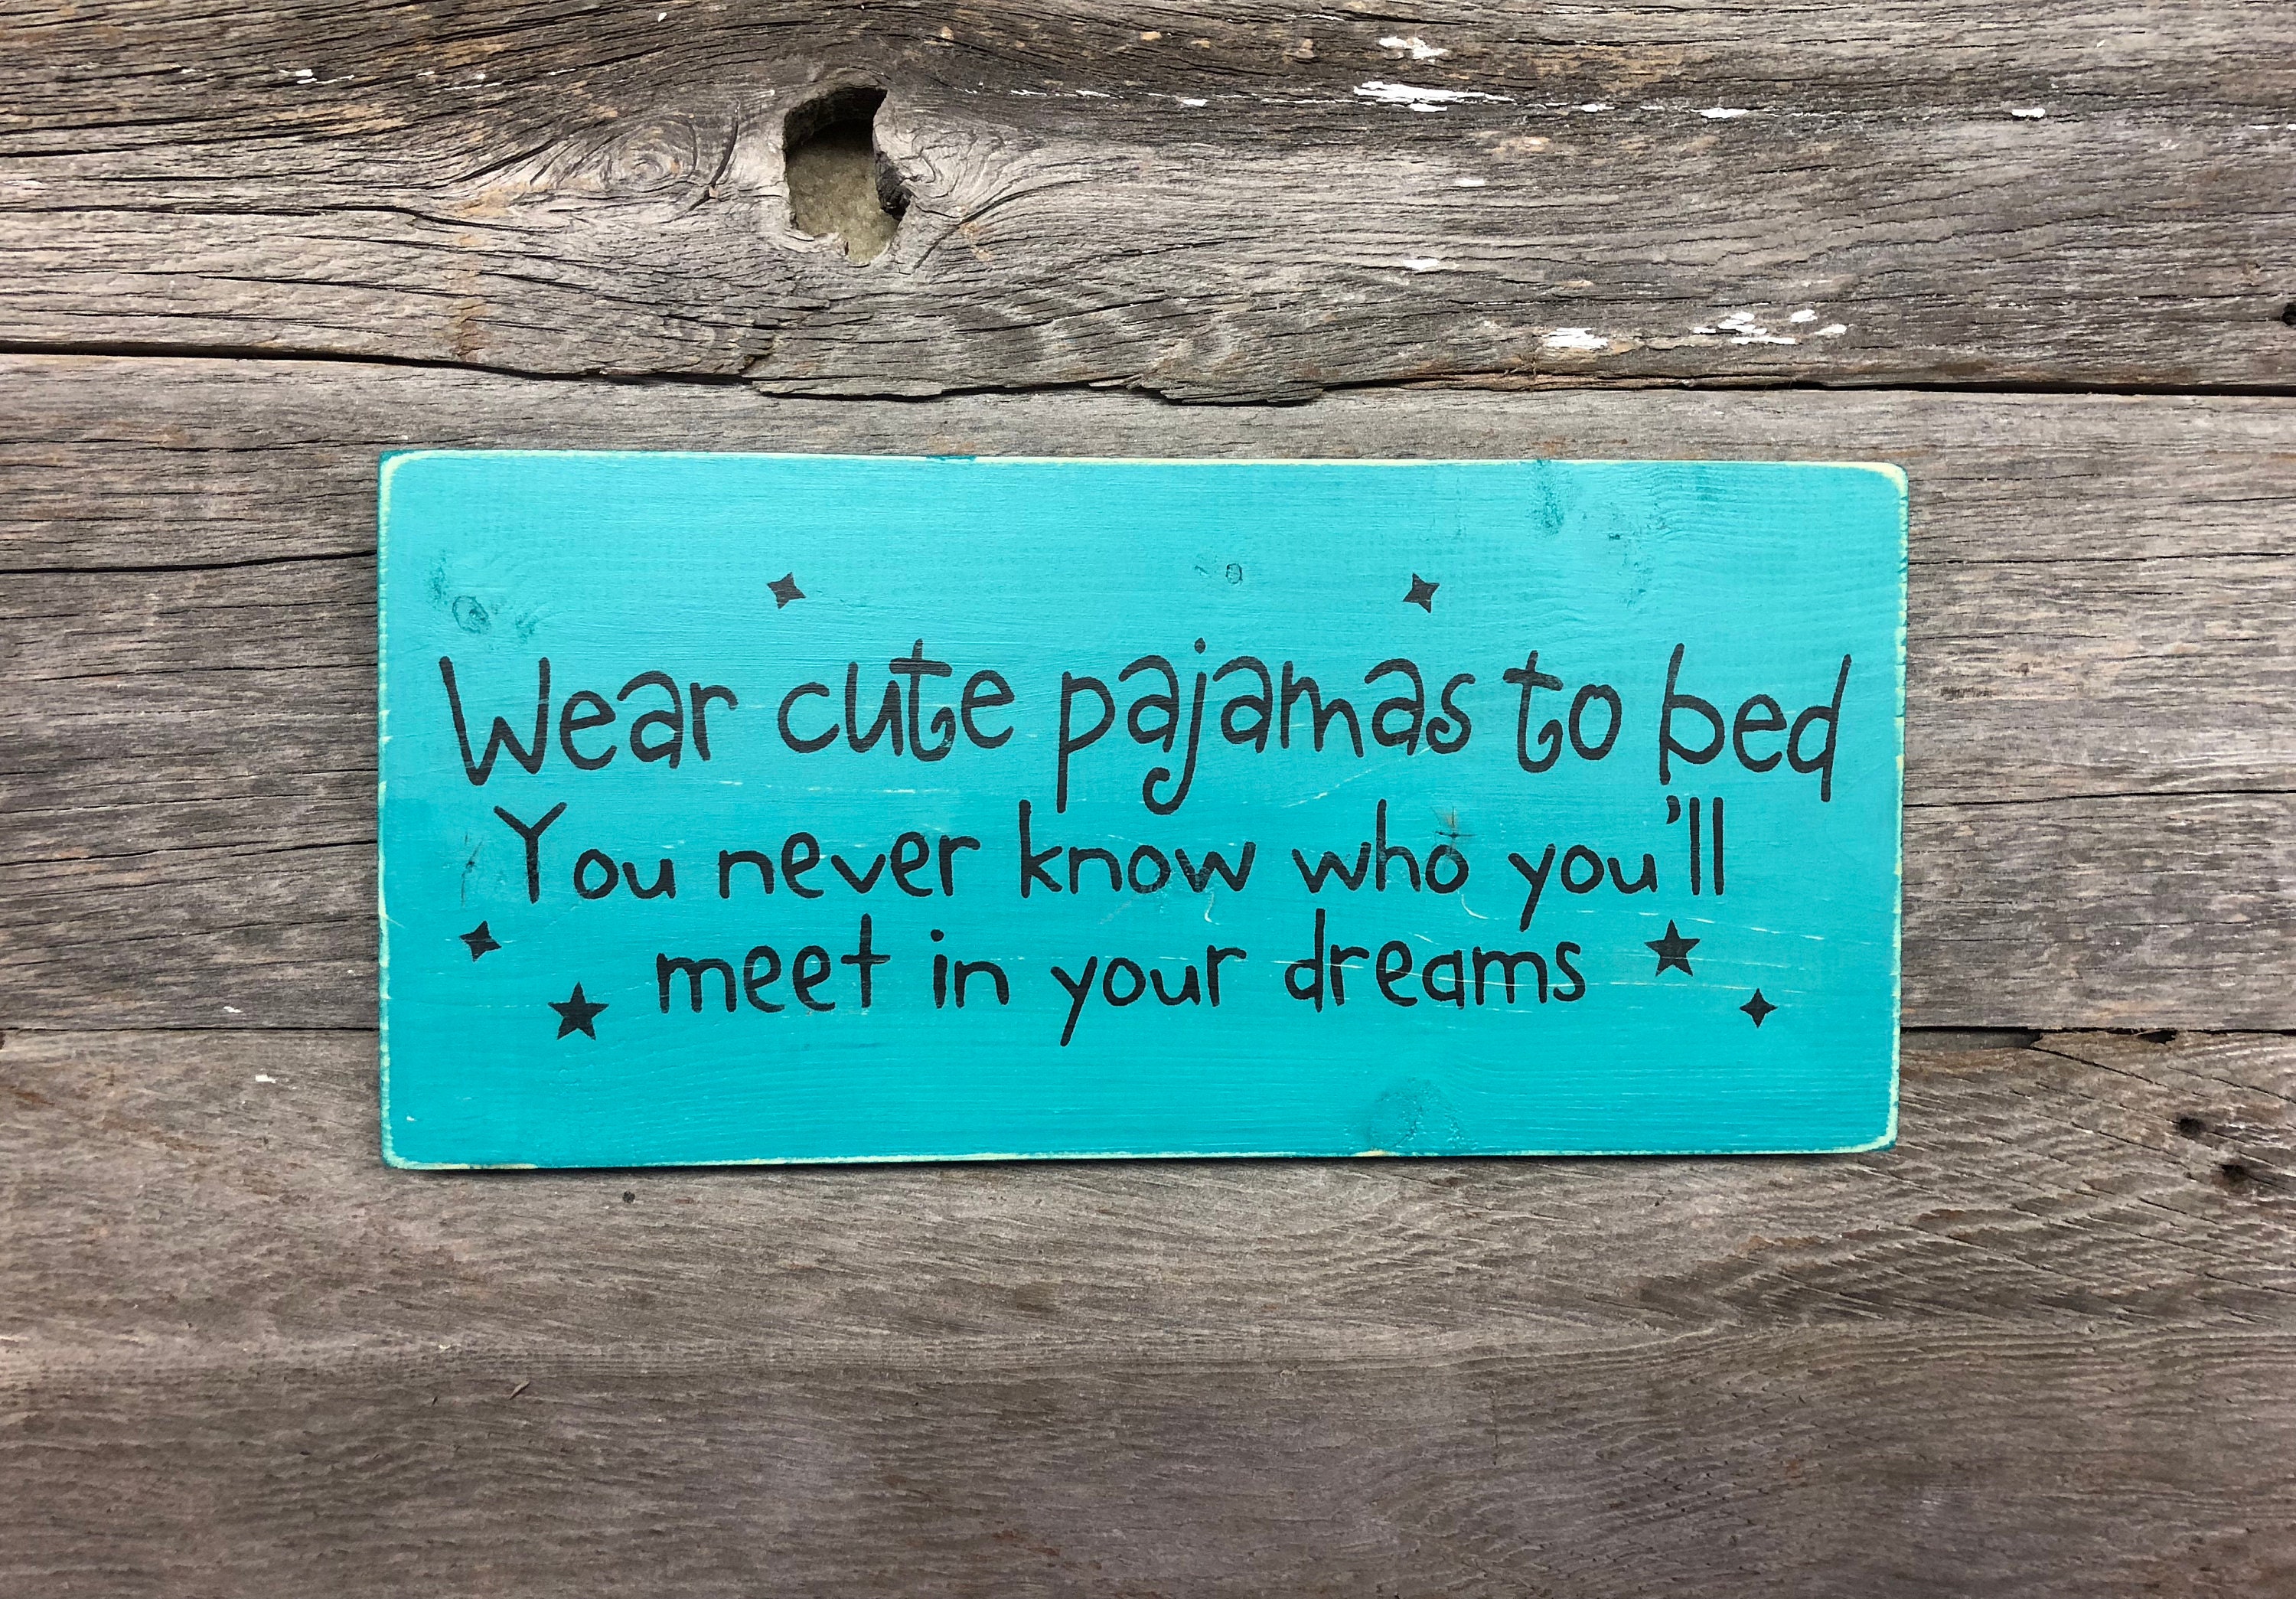 Wear cute pajamas to bed
You never know who you'll
meet in your dreams